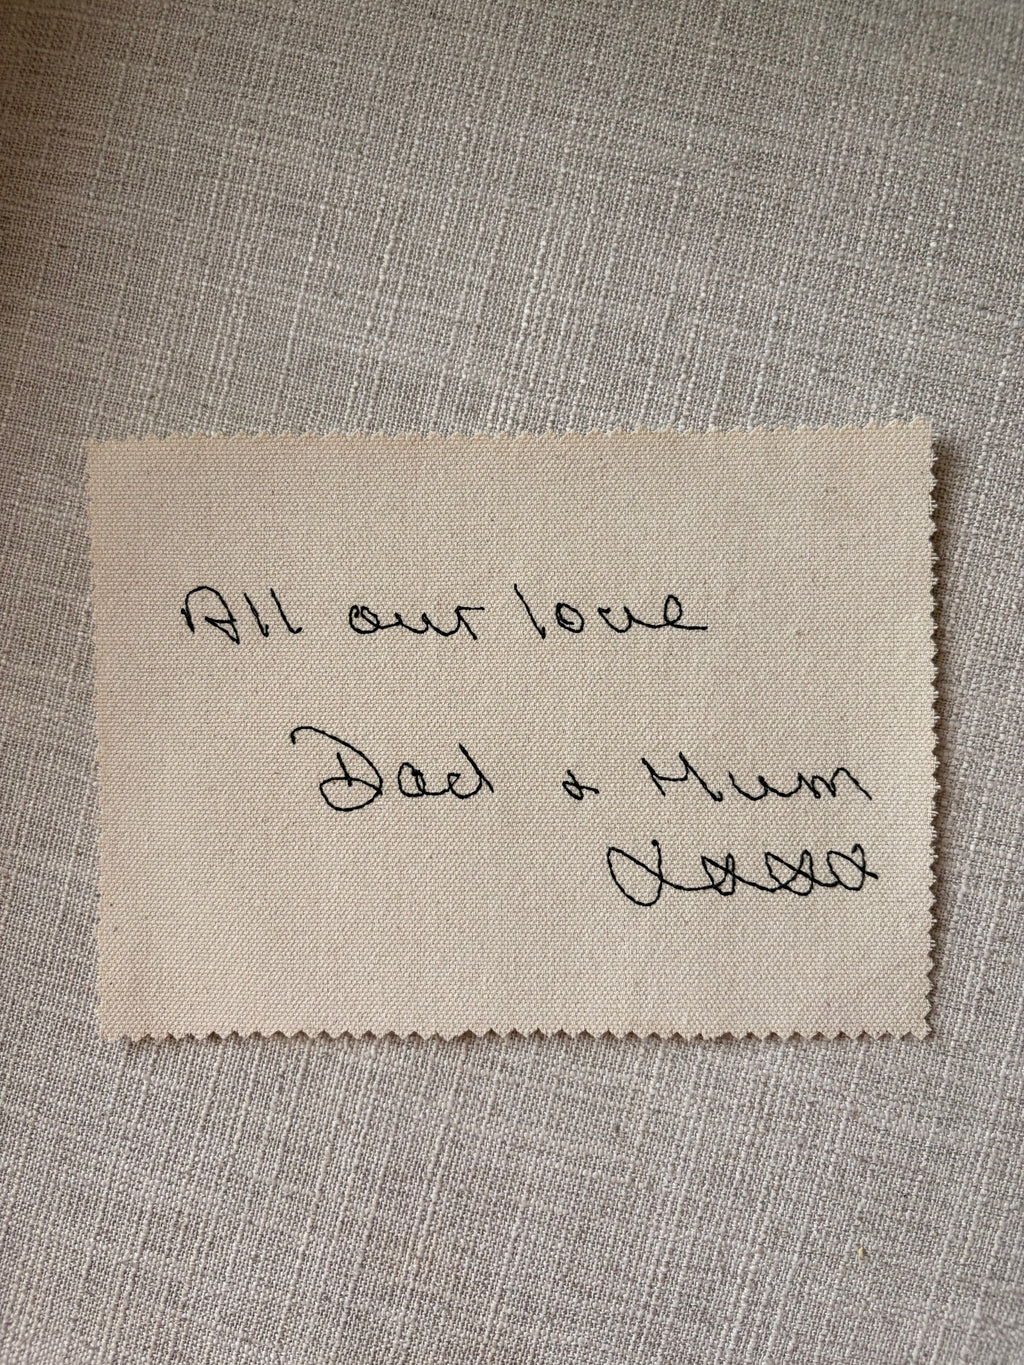 All our love
Dad & Mum
xxxx